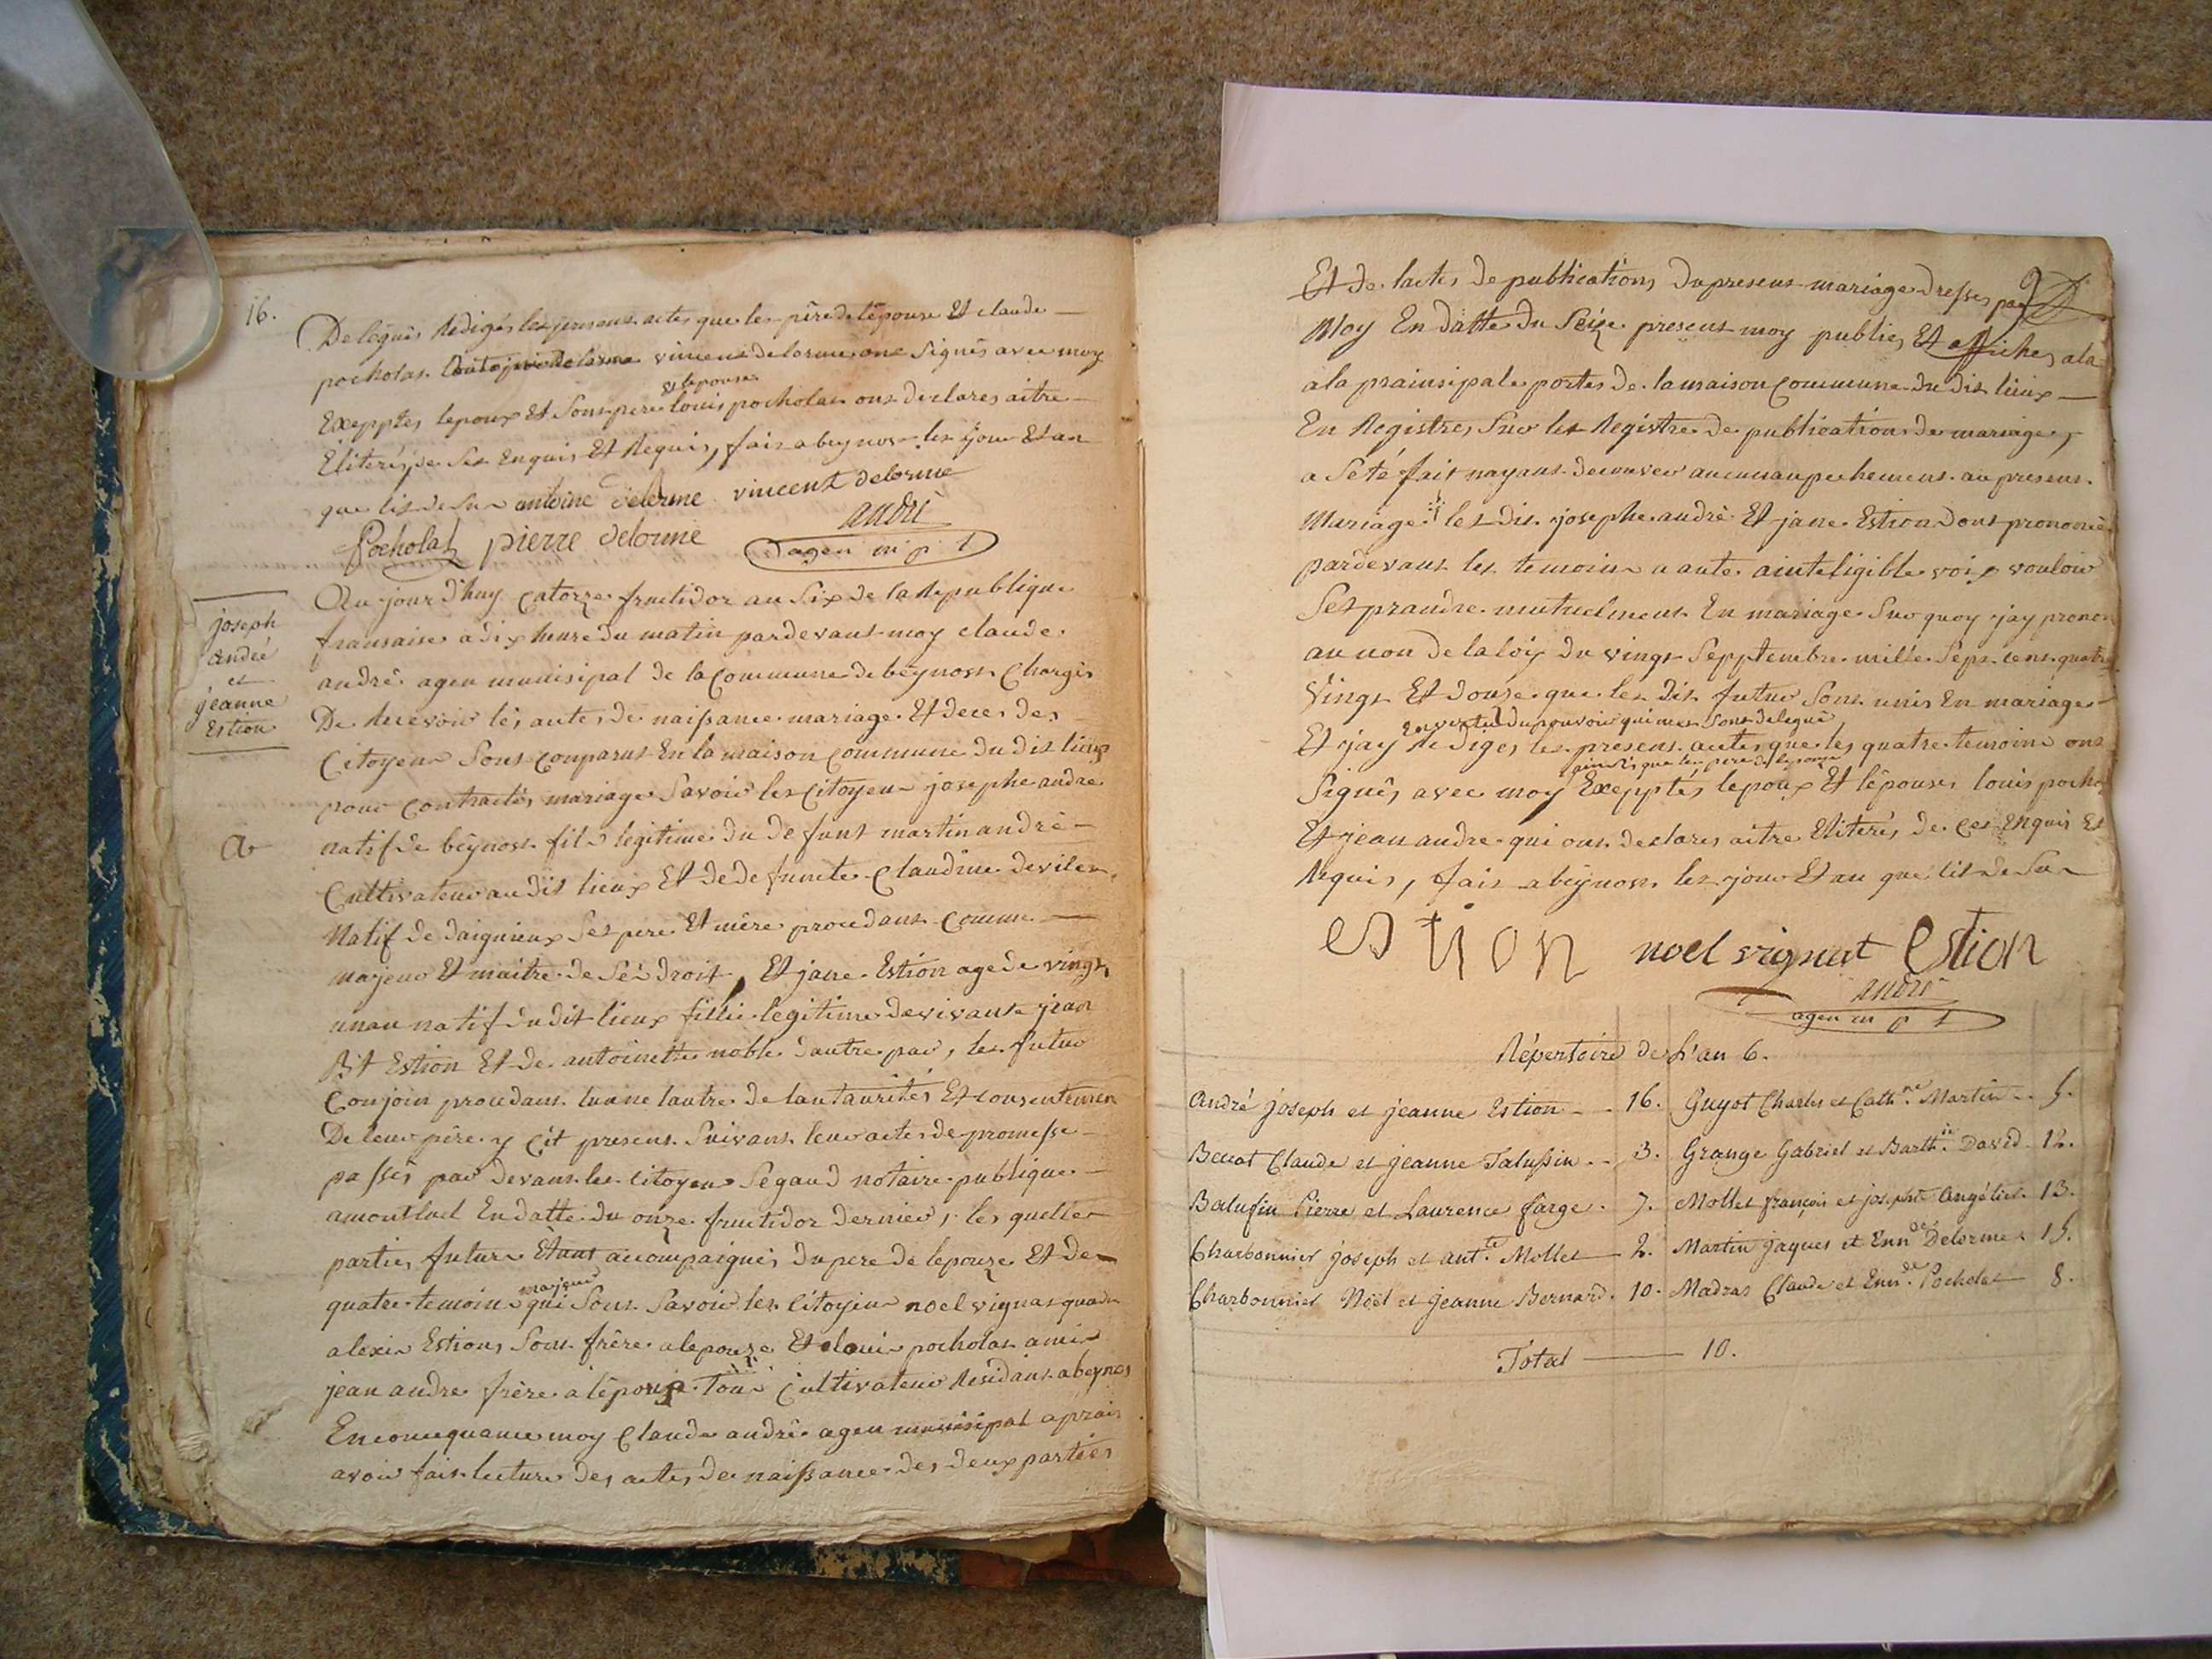 16.
Delégués Rédigés les presens actes que les père de lépouse Et claude
pocholas vincent delorme ons Signés avec moy
& lepouse
Exepptes lepoux Et Sons pere louis pocholas ons declares aitre
Eliterés, de Ses Enquis Et Requis, fais a beynos les jour Et an
que lis de Sus antoine delorme vincent delorme
Pocholat pierre delorme andré
agen m p l
joseph
andré
et
jeanne
Estion
Au jour d'huy catorze fructidor an Six de la Republique
fransaise a dix heure du matin pardevant moy claude
andré agen munisipal de la Commune de béynost Chargés
De Recevoir lés actes de naissance mariage Et deces des
Citoyens Sons Conparus En la maison Commune du dis lieux
pour Contractés mariage Savoir les Citoyens josephe andre
natif de béynost fils legitime du defunt martin andré
Cultivateur au dis lieux Et de defuncte Claudine devilen
Natif de daignieux Ses pere Et mére proudans Comme
majeur Et maitre de Sés droit, Et jane Estion age de vings
unan natif du dit lieux fillie legitime de vivants jean
Bt Estion Et de antoinette noble dautre par, les futur
Conjoin proudans lun ne lautre de lautaurités Et consentemen
De leur pére y cét presens Suivans leur actes de promesse
passés par devans les citoyens Segaud notaire publique
a montluel En datte du onze fructidor dernier, les quelles
parties future Etant accompaignés du pere de lepouze Et de
majeur
quatre temoins qui Sons Savoir les Citoyens noel vignas quadu
alexis Estion, Sons frére a lepouze Et louis pocholas amis
jean andre frére a lépoux Tous Cultivateur Residans a beynos
En consequance moy Claude andré agen munisipal aprais
avoir fais lecture des actes de naissance des deux parties
9
Et de lactes de publications du presens mariage dresses par
Moy En datte du Seize presens moy publies Et affiches a la
a la prainsipale portes de la maison Commune du dis lieux
En Registres Sur les Registre de publications de mariage,
a Sété fais nayans decouver aucun anpechemens au presens
Mariage les dis josephe andré Et jane Estion dons prononcé
pardevans les temoins a aute ainteligible voix vouloir
Ses prandre mutuelmens En mariage Sur quoy jay pronon
au non de la loiy du vings Sepptembre mille Seps cens quatre
Vings Et douse que les dis futur Sons unis En mariages
En vertu du pouvoir qui mes Sons delegué
Et jay Rediges les presens actes que les quatre temoins ons
ainsis que les pere de lepouse
Signés avec moy Exepptés lepoux Et lépouses louis pocho
Et jean andre qui ons declares aitre Eliterés de ces Enquis Et
Requis, fais a béynos les jour Et an que lis de Sus
estion noel vignat Estion
andré
agen m p l
Répertoire de l'an 6.
André joseph et jeanne Estion - . 16. Guyot Charles et Cath.ne Martin - . 5.
Benoat Claude et jeanne Talussin . - 3. Grange Gabriel et Barth.ie David . 12.
Balufin Pierre et Laurence farge . 7. Mollet françois et josephte Angélier . 13.
Charbonnier joseph et Ant.te Mollet — 2. Martin jaques et Enn.de Delorme . 15.
Charbonnier Noël et jeanne Bernard . 10. Madras Claude et Enn.de Pocholat — 8.
Total ——— 10.